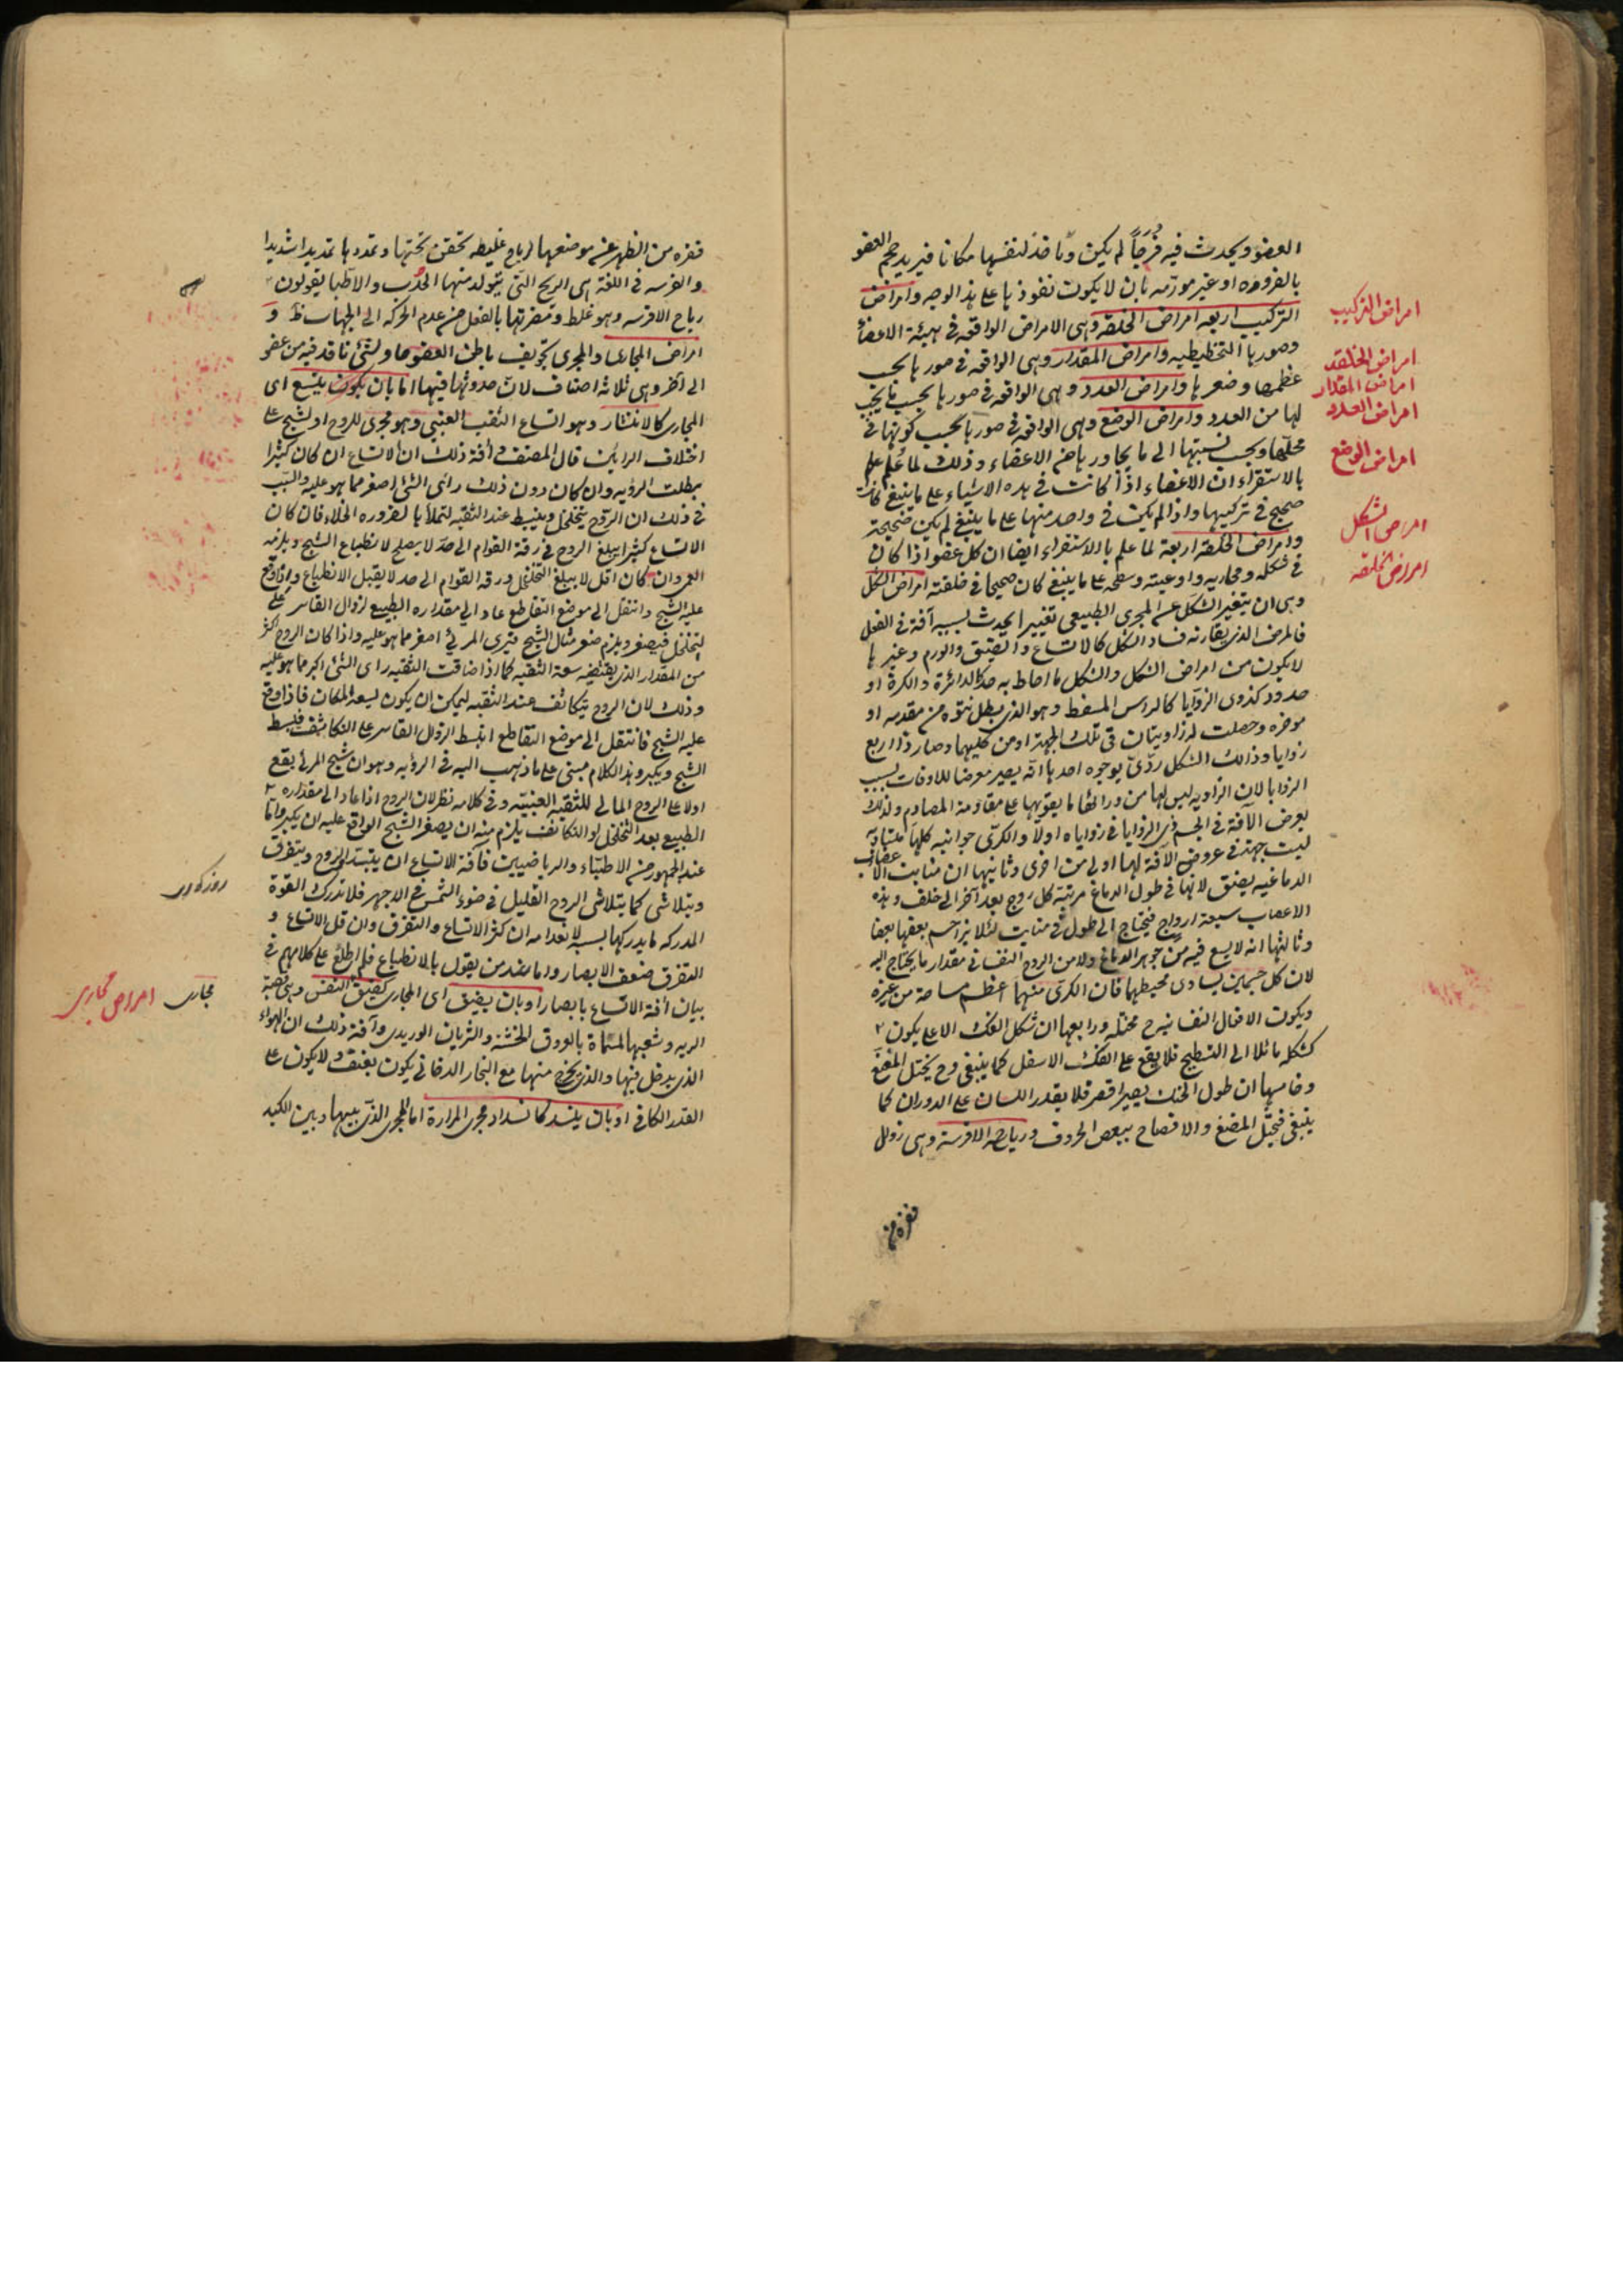 العضو ويحدث فيه فرجاً لم يكن ونافذ لنفسها مكانا فيزيد حجم العضو
بالضرورة او غير مورّمه بان لا يكون نفوذها على هذا الوجه وامراض
التركيب اربعه امراض الخلقة وهى الامراض الواقعه فى هيئة الاعضاء
وصورها التخطيطيه وامراض المقدار وهى الواقعه فى صورها بحسب
عظمها وصغرها وامراض العدد وهى الواقعه فى صورها بحسب ما يجب
لها من العدد وامراض الوضع وهى الواقعه فى صورها بحسب كونها فى
محلها وبحسب نسبتها الى ما يجاورها من الاعضاء وذلك لما عُلم
بالاستقراء ان الاعضاء اذا كانت فى هذه الاشياء على ما ينبغى كانت
صحيح فى تركيبها واذا لم يكن فى واحد منها على ما ينبغى لم يكن صحيحة
وامراض الخلقة اربعة لما علم بالاستقراء ايضا ان كل عضو اذا كان
فى شكله ومجاريه واوعيته وسطحه على ما ينبغى كان صحيحا فى خلقته امراض الشكل
وهى ان يتغير الشكل عن المجرى الطبيعى تغييرا يحدث بسببه آفة فى الفعل
فالمرض الذى يقارنه فساد الشكل كالاتساع والضيق والورم وغيرها
لا يكون من امراض الشكل والشكل ما احاط به حد كالدائرة والكرة او
حدود كذوى الزوايا كالراس المسفط وهو الذى يبطل نتوه من مقدمه او
موخره وحصلت له زاويتان فى تلك الجهة او من كليهما وصار ذا اربع
زوايا وذلك الشكل ردّى بوجوه احدها انّه يصير معرضا للآفات بسبب
الزوايا لان الزاويه ليس لها من ورائها ما يقويها على مقاومة المصادم ولذلك
يعرض الآفة فى الجسم ذى الزوايا فى زواياه اولا والكرى جوانبه كلها متشابه
ليست جهة فى عروض الآفة لها اولى من اخرى وثانيها ان منابت الاعصاب
الدماغيه يضيق لانها فى طول الدماغ مرتبة كل زوج بعد آخر الى خلف وهذه
الاعصاب سبعة ازواج فيحتاج الى طول فى منابت لئلا يزاحم بعضها بعضا
وثالثها انه لا يسع فيه من جوهر الدماغ ولا من الروح النفسانى مقدار ما يحتاج اليه
لان كل جسمين تساوى محيطهما فان الكرى منهما اعظم مساحة من غيره
ويكون الافعال النفسانيه ح مختله ورابعها ان شكل الفك الاعلى يكون
كشكله مائلا الى التسطيح فلا يقع على الفك الاسفل كما ينبغى وح يختل المضغ
وخامسها ان طول الحنك يصير اقصر فلا يقدر اللسان على الدوران كما
ينبغى فيختل المضغ والافصاح ببعض الحروف ورياح الافرسة وهى زوال
فقره من
امراض التركيب
امراض الخلقه
امراض المقدار
امراض العدد
امراض الوضع
امراض الشكل
امراض الخلقه
فقره من الظهر عن موضعها لرياح غليظه تحتقن تحتها وتمددها تمديدا شديدا
والفرسه فى اللغة هى الريح التى يتولد منها الحدب والاطبا يقولون
رياح الافرسه وهو غلط ومضرتها بالفعل من عدم الحركه الى الجهات ظ و
امراض المجارى والمجرى تجويف باطن العضو حاو لشئ نافذ فيه من عضو
الى آخر وهى ثلاثه اصناف لان حدوثها فيها اما بان يكون يتسع اى
المجارى كالانتشار وهو اتساع الثقب العنبى وهو مجرى للروح او لشبح على
اختلاف الرايين قال المصنف فى آفة ذلك ان الاتساع ان كان كثيرا
بطلت الرؤيه وان كان دون ذلك رائى الشئ اصغر مما هو عليه والسبب
فى ذلك ان الروح يتخلخل وينبسط عند الثقبه لتملأها لضروره الخلاء فان كان
الاتساع كثيرا يبلغ الروح فى رقة القوام الى حد لا يصلح لانطباع الشبح ويلزمه
العمى وان كان اقل لا يبلغ التخلخل ورقه القوام الى حد لا يقبل الانطباع واذا وقع
عليه الشبح وانتقل الى موضع التقاطع عاد الى مقداره الطبيعى لزوال القاسر على
التخلخل فيصغر ويلزم صغر مثال الشبح فترى المرئى اصغر مما هو عليه واذا كان الروح اكثر
من المقدار الذى يقتضيه سعة الثقبه كما اذا ضاقت الثقبه راى الشئ اكبر مما هو عليه
وذلك لان الروح يتكاثف عند الثقبه ليمكن ان يكون يسعه المكان فاذا وقع
عليه الشبح فانتقل الى موضع التقاطع انبسط لزوال القاسر على التكاثف فينبسط
الشبح ويكبر وهذا الكلام مبنى على ما ذهب اليه فى الرؤيه وهو ان شبح المرئى يقع
اولا على الروح المالى للثقبه العنبيه وفى كلامه نظر لان الروح اذا عاد الى مقداره
الطبيعى بعد التخلخل او التكاثف يلزم منه ان يصغر الشبح الواقع عليه ان يكبر واما
عند الجمهور من الاطباء والرياضيين فآفة الاتساع ان يتبدد الروح ويتفرق
ويتلاشى كما يتلاشى الروح القليل فى ضوء الشمس فى الاجهر فلا تدرك القوة
المدركه ما يدركها بسببه لانعدامه ان كثر الاتساع والتفرق وان قل الاتساع و
التفرق ضعف الابصار واما عند من يقول بالانطباع فلم اطلع على كلامهم فى
بيان آفة الاتساع بابصار او بان يضيق اى المجارى كضيق النفس وهى قصبة
الريه وشعبها المسماة بالعروق الخشنة والشريان الوريدى وآفة ذلك ان الهواء
الذى يدخل فيها والذى يخرج منها مع البخار الدخانى يكون بعنف ولا يكون على
القدر الكافى او بان ينسد كانسداد مجرى المرارة اما المجرى الذى بينها وبين الكبد
روزكورى
مجارى
امراض مجارى